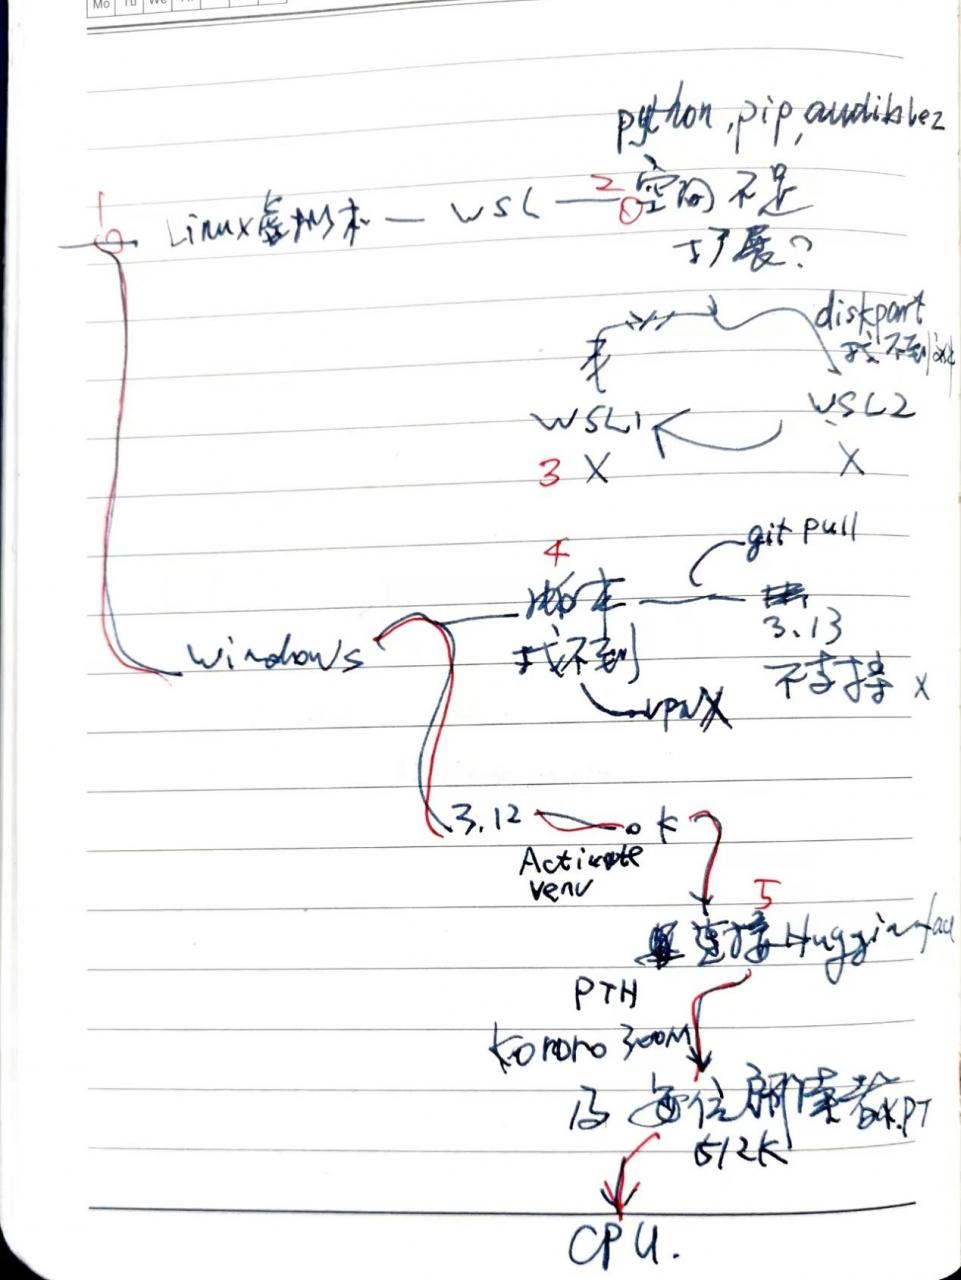 Mo Tu We
python, pip, audiblez
1
Linux虚拟机 — WSL — 2 ① 空间不足
扩展?
diskpart
找不到
WSL1
WSL2
3 X
X
4
git pull
脚本
3.13
windows
找不到
不支持 X
vpn X
3.12
ok
Activate
venv
5
连接 Hugginface
PTH
Kororo 300M
及 每位朗读者.PT
512K
CPU.